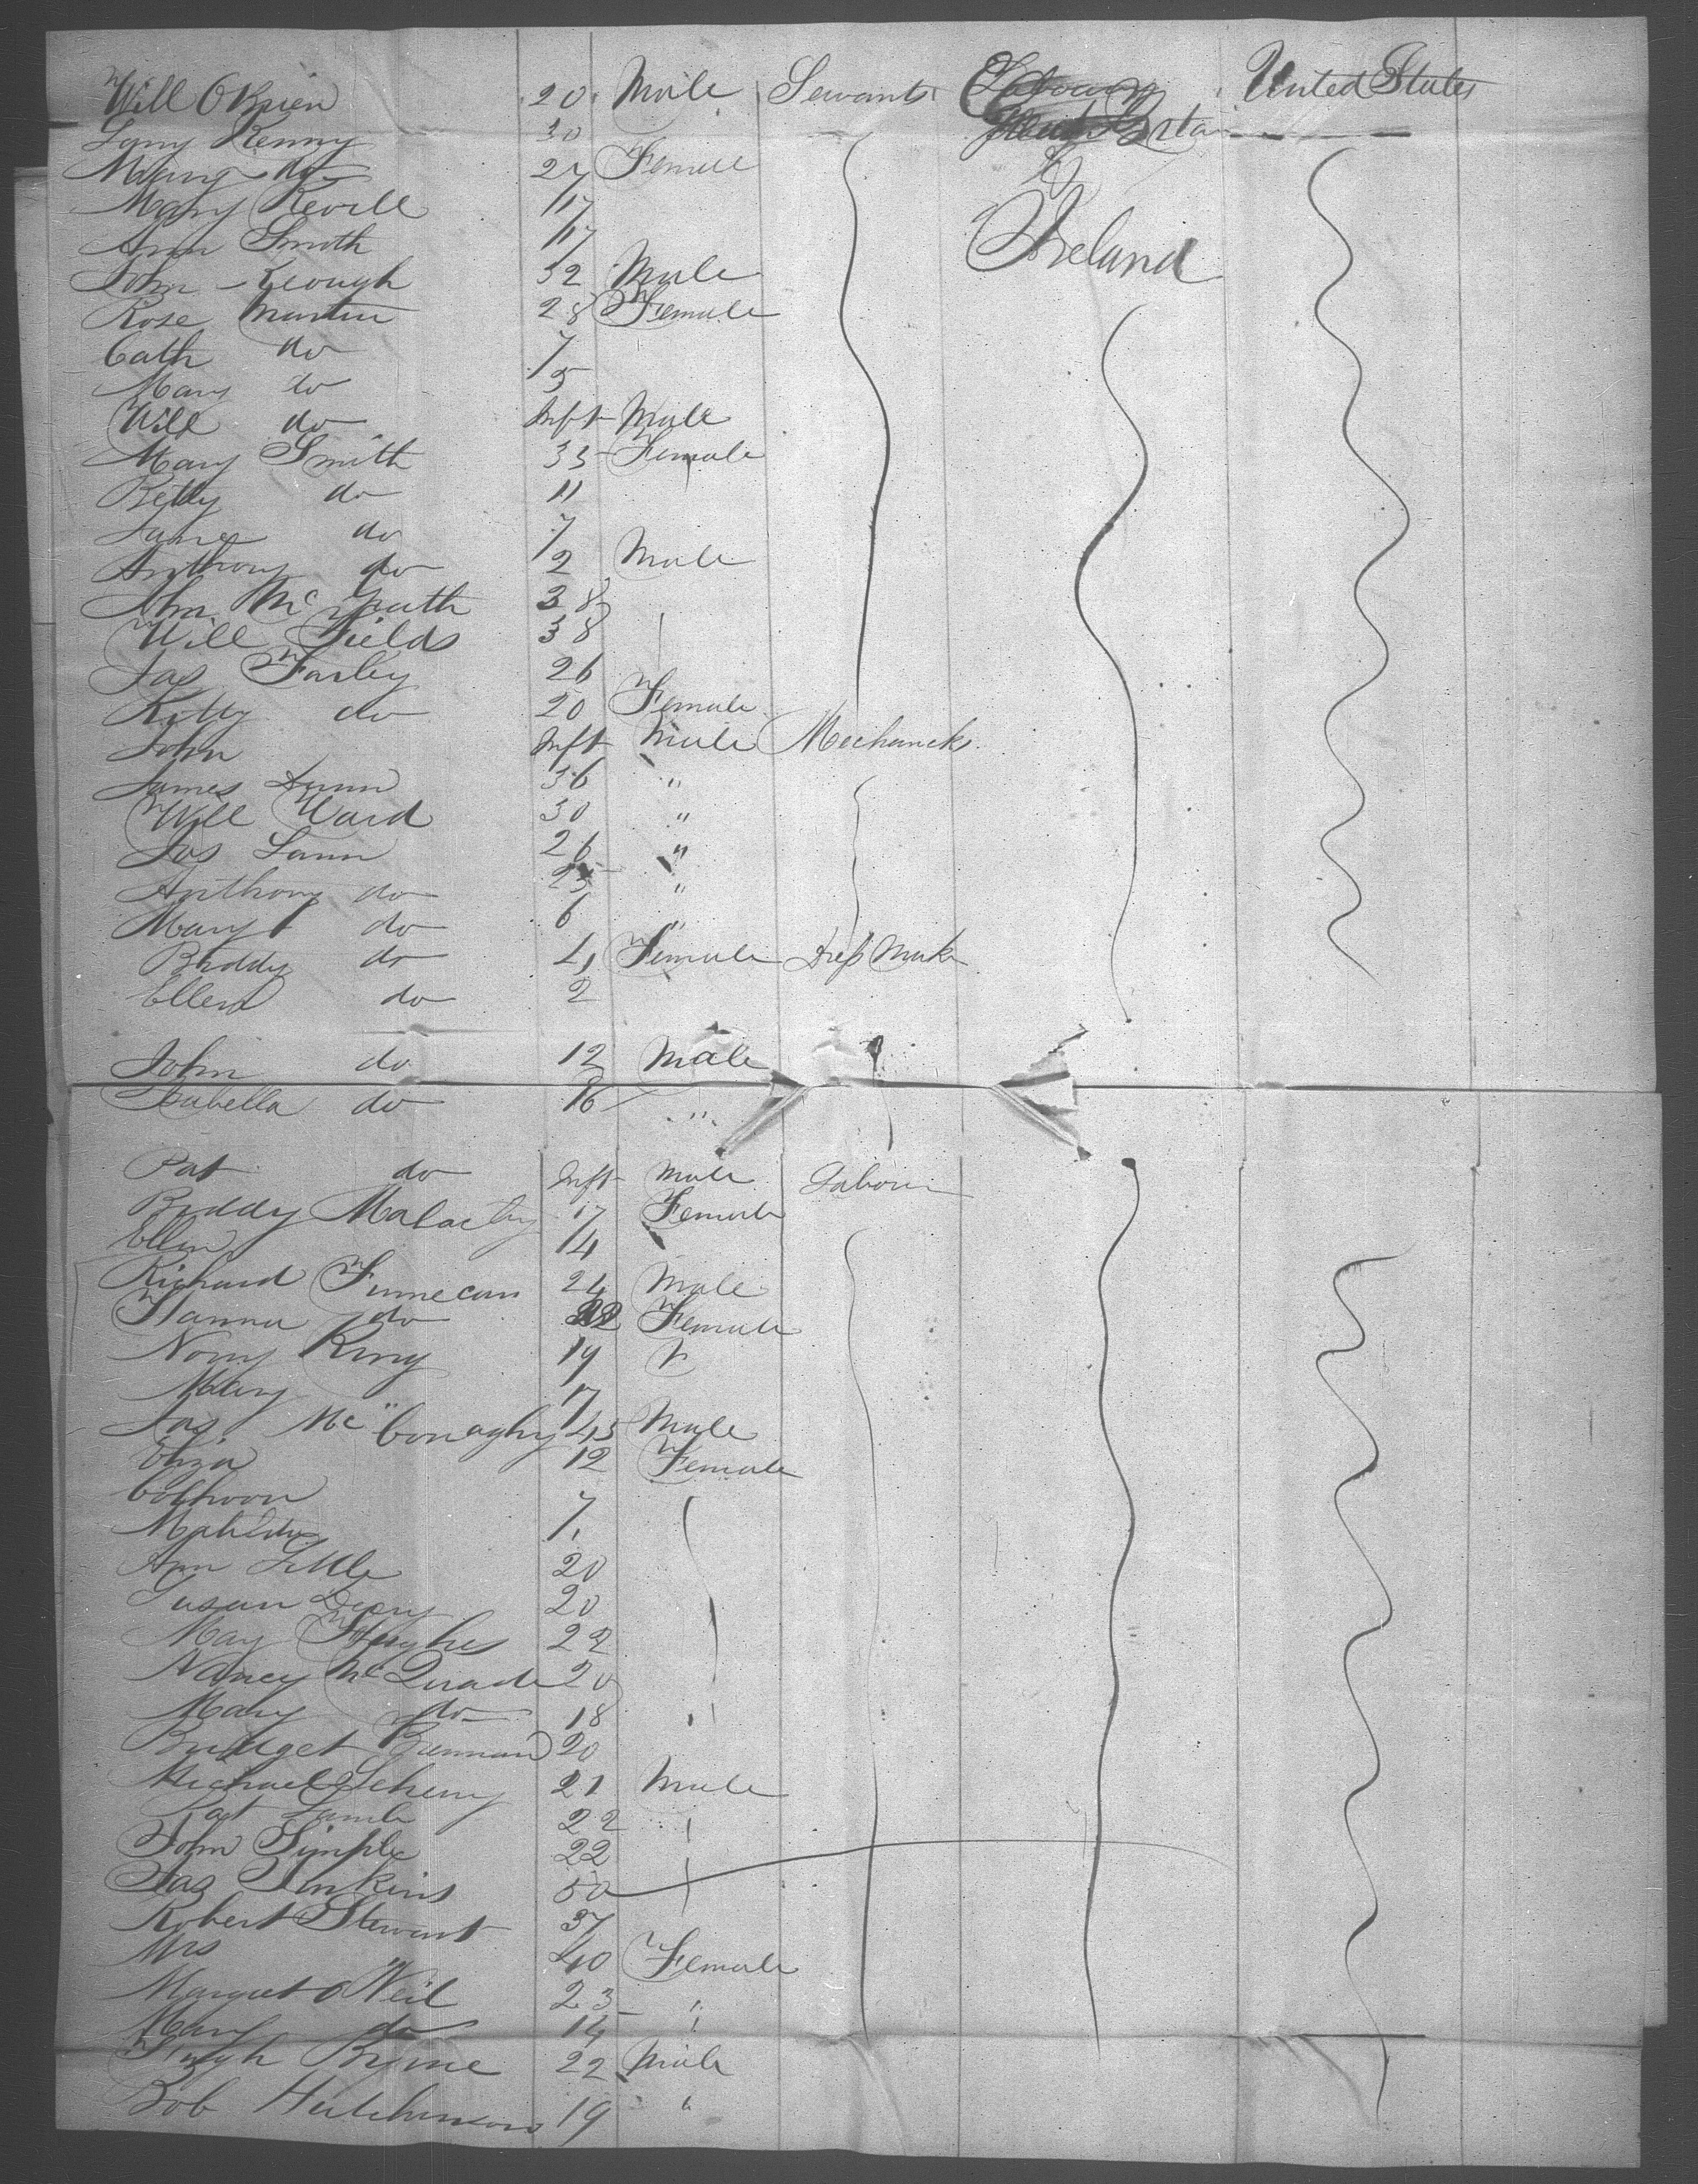 Will OBrien 20 Male Servants United States
Lany Kenny 30
Mary do 27 Female
Mary Kevill 17
Ann Smith 17 Ireland
John Keough 32 Male
Rose Martin 28 Female
Cath do 7
Mary do 5
Will do Inft Male
Mary Smith 35 Female
Betty do 11
James do 7
Anthony do 2 Male
John McGrath 38
Will Fields 38
Jas Farley 26
Kitty do 20 Female
John Inft Male Mechanicks
James Dunn 36 "
Will Ward 30 "
Jas Lann 26 "
Anthony do 25 "
Mary do 6 "
Biddy do 4 Female Dress Maker
Ellen do 2
John do 12 Male
Isabella do 16 "
Pat do Inft Male Labour
Biddy Malachy 17 Female
Ellen 14
Richard Finnecan 24 Male
Hanna do 22 Female
Nony King 19
Mary 17
Jas McConaghy 45 Male
Eliza 12 Female
Colhoon 7
Matilda 1
Ann Little 20
Susan Deery 20
May Hughes 22
Nancy McQuade 20
Mary do 18
Bridget Brennan 20
Michael 21 Male
Pat Lamb 22
John Simple 22
Jas Jenkins 50
Robert Stewart 37
Mrs 40 Female
Margret O Neil 23 "
Mary do 14 "
Hugh Byrne 22 Male
Bob Hutchinson 19 "